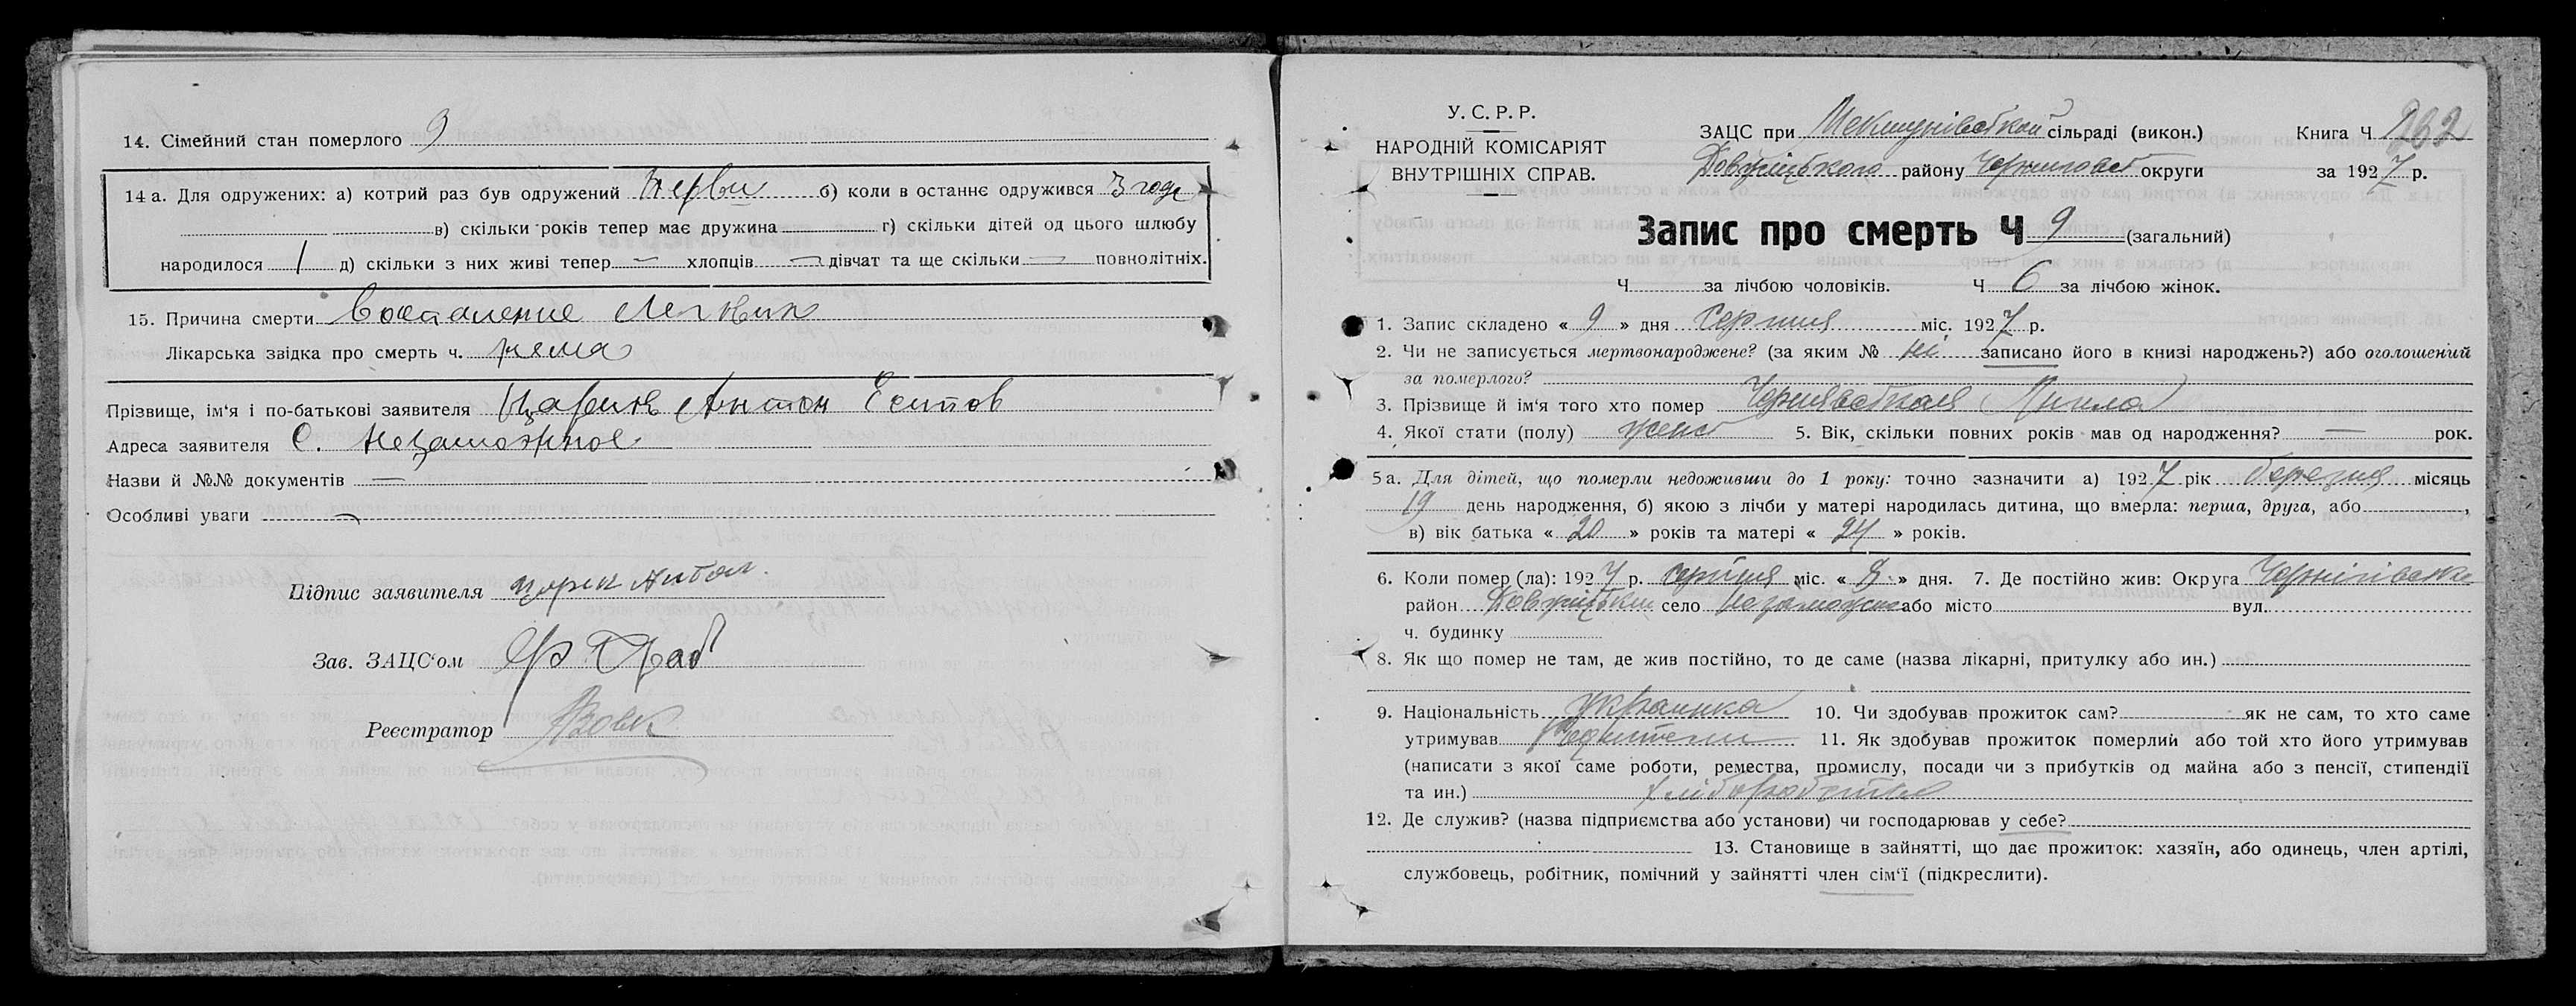 14. Сімейний стан померлого 9
14 а. Для одружених: а) котрий раз був одружений Первы б) коли в останнє одружився 3 года
в) скільки років тепер має дружина г) скільки дітей од цього шлюбу
народилося 1 д) скільки з них живі тепер — хлопців — дівчат та ще скільки — повнолітніх.
15. Причина смерти Воспаление Легких
Лікарська звідка про смерть ч. нема
Прізвище, ім'я і по-батькові заявителя Антон
Адреса заявителя С. Незаможное
Назви й №№ документів —
Особливі уваги —
Підпис заявителя Антон.
Зав. ЗАЦС'ом
Реєстратор Вовк
У. С. Р. Р.
НАРОДНІЙ КОМІСАРІЯТ
ВНУТРІШНІХ СПРАВ.
ЗАЦС при сільраді (викон.) Книга Ч 262
району округи за 1927 р.
Запис про смерть Ч 9 (загальний)
Ч за лічбою чоловіків. Ч 6 за лічбою жінок.
1. Запис складено « 9 » дня Серпня міс. 1927 р.
2. Чи не записується мертвонароджене? (за яким № ні записано його в книзі народжень?) або оголошений
за померлого?
3. Прізвище й ім'я того хто помер
4. Якої стати (полу) женс 5. Вік, скільки повних років мав од народження? — рок.
5а. Для дітей, що померли недоживши до 1 року: точно зазначити а) 1927 рік березня місяць
19 день народження, б) якою з лічби у матері народилась дитина, що вмерла: перша, друга, або ,
в) вік батька « 20 » років та матері « 24 » років.
6. Коли помер (ла): 1927 р. серпня міс. « 8 » дня. 7. Де постійно жив: Округа
район село або місто вул.
ч. будинку
8. Як що помер не там, де жив постійно, то де саме (назва лікарні, притулку або ин.)
9. Національність украинка 10. Чи здобував прожиток сам? як не сам, то хто саме
утримував Родители 11. Як здобував прожиток померлий або той хто його утримував
(написати з якої саме роботи, ремества, промислу, посади чи з прибутків од майна або з пенсії, стипендії
та ин.)
12. Де служив? (назва підприємства або установи) чи господарював у себе?
13. Становище в зайнятті, що дає прожиток: хазяїн, або одинець, член артілі,
службовець, робітник, помічний у зайнятті член сім'ї (підкреслити).